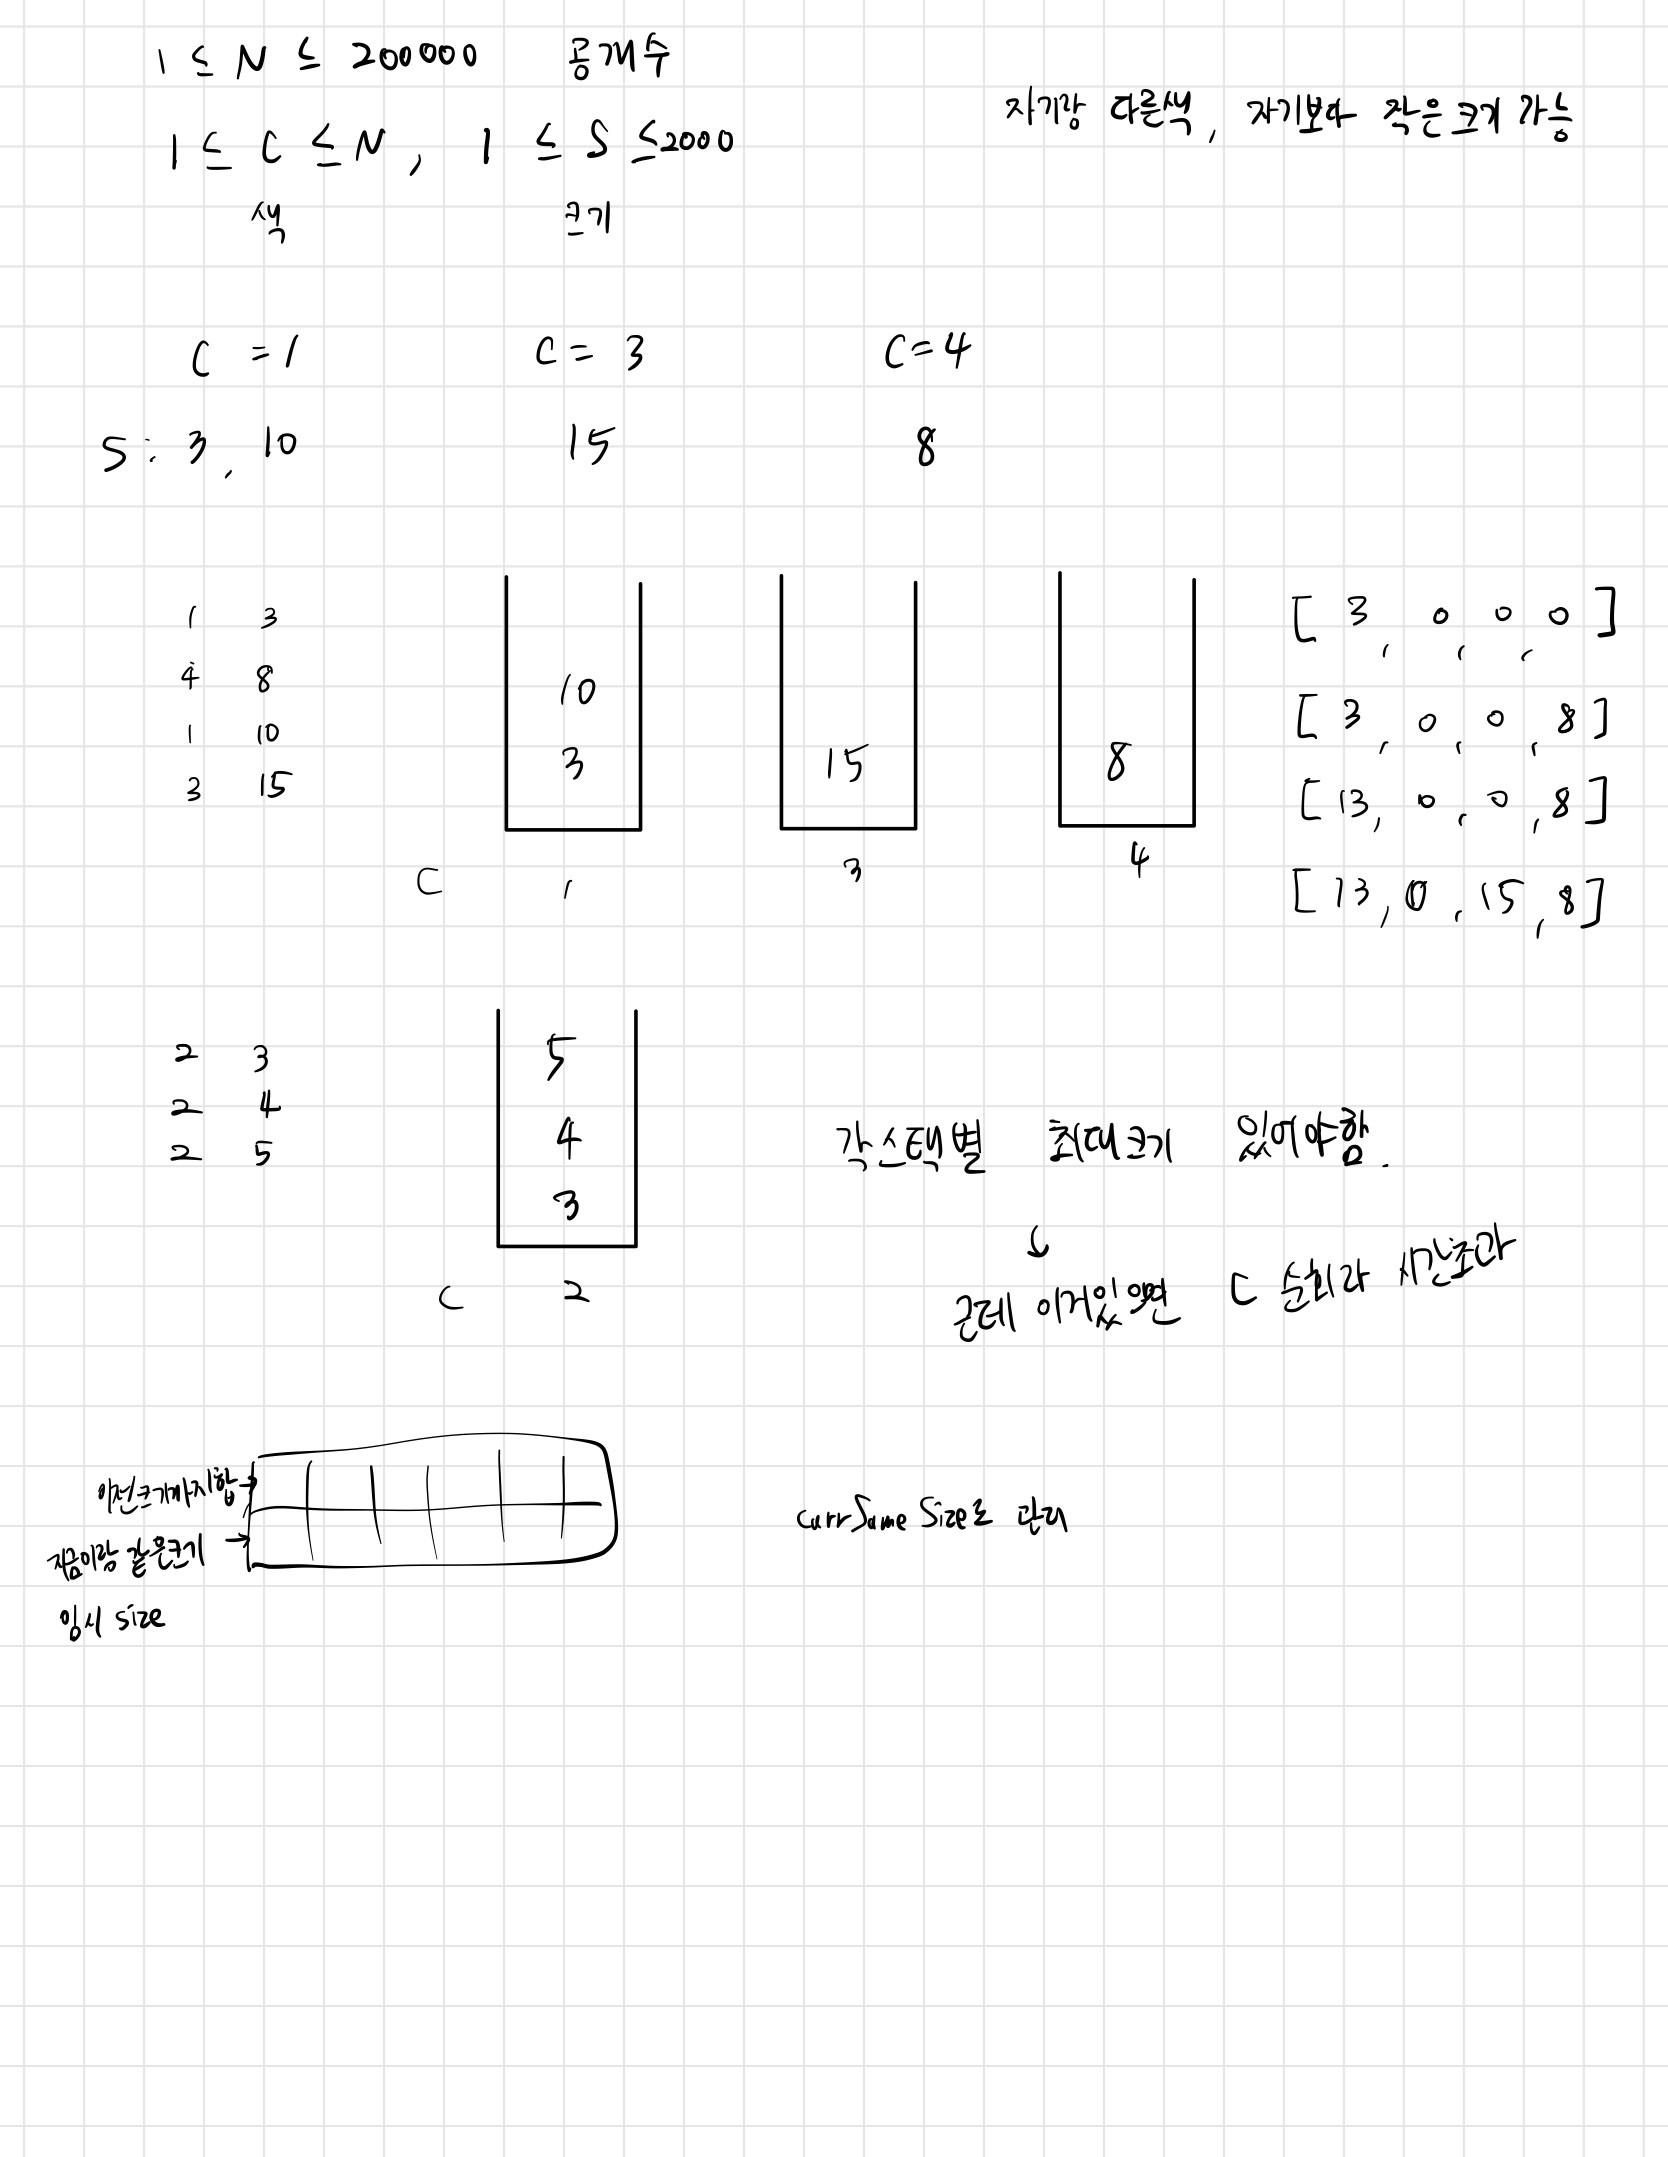 1 ≤ N ≤ 200000 공개수
자기랑 다른색, 자기보다 작은크기 가능
1 ≤ C ≤ N, 1 ≤ S ≤ 2000
색 크기
C = 1 C = 3 C = 4
S : 3, 10 15 8
1 3
4 8
1 10
3 15
10
3
15
8
C 1 3 4
[ 3, 0, 0, 0 ]
[ 3, 0, 0, 8 ]
[ 13, 0, 0, 8 ]
[ 13, 0, 15, 8 ]
2 3
2 4
2 5
5
4
3
C 2
각스택별 최대크기 있어야함.
↓
근데 이거있으면 C 순회라 시간초과
이전크기까지합 →
지금이랑 같은크기 →
임시 size
curr Same Size로 관리